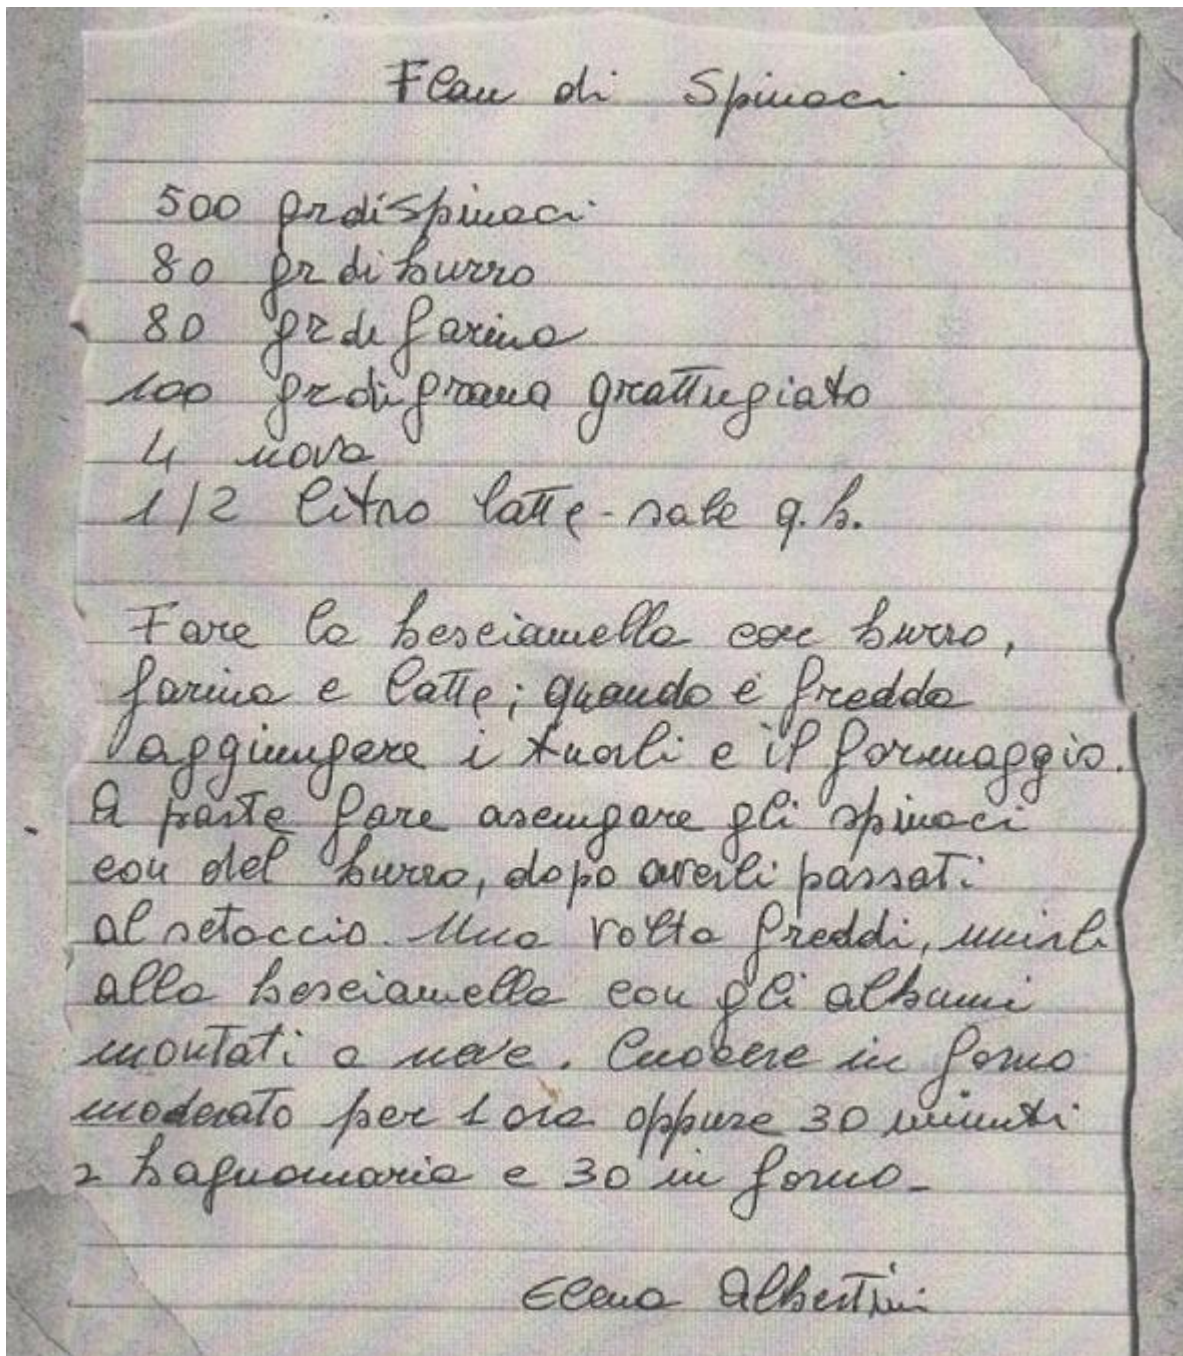 Flan di Spinaci
500 gr di spinaci
80 gr di burro
80 gr di farina
100 gr di grana grattugiato
4 uova
1/2 litro latte - sale q.b.
Fare la besciamella con burro,
farina e latte; quando è fredda
aggiungere i tuorli e il formaggio.
A parte fare asciugare gli spinaci
con del burro, dopo averli passati
al setaccio. Una volta freddi, unirli
alla besciamella con gli albumi
montati a neve. Cuocere in forno
moderato per 1 ora oppure 30 minuti
a bagnomaria e 30 in forno -
Elena Albertini